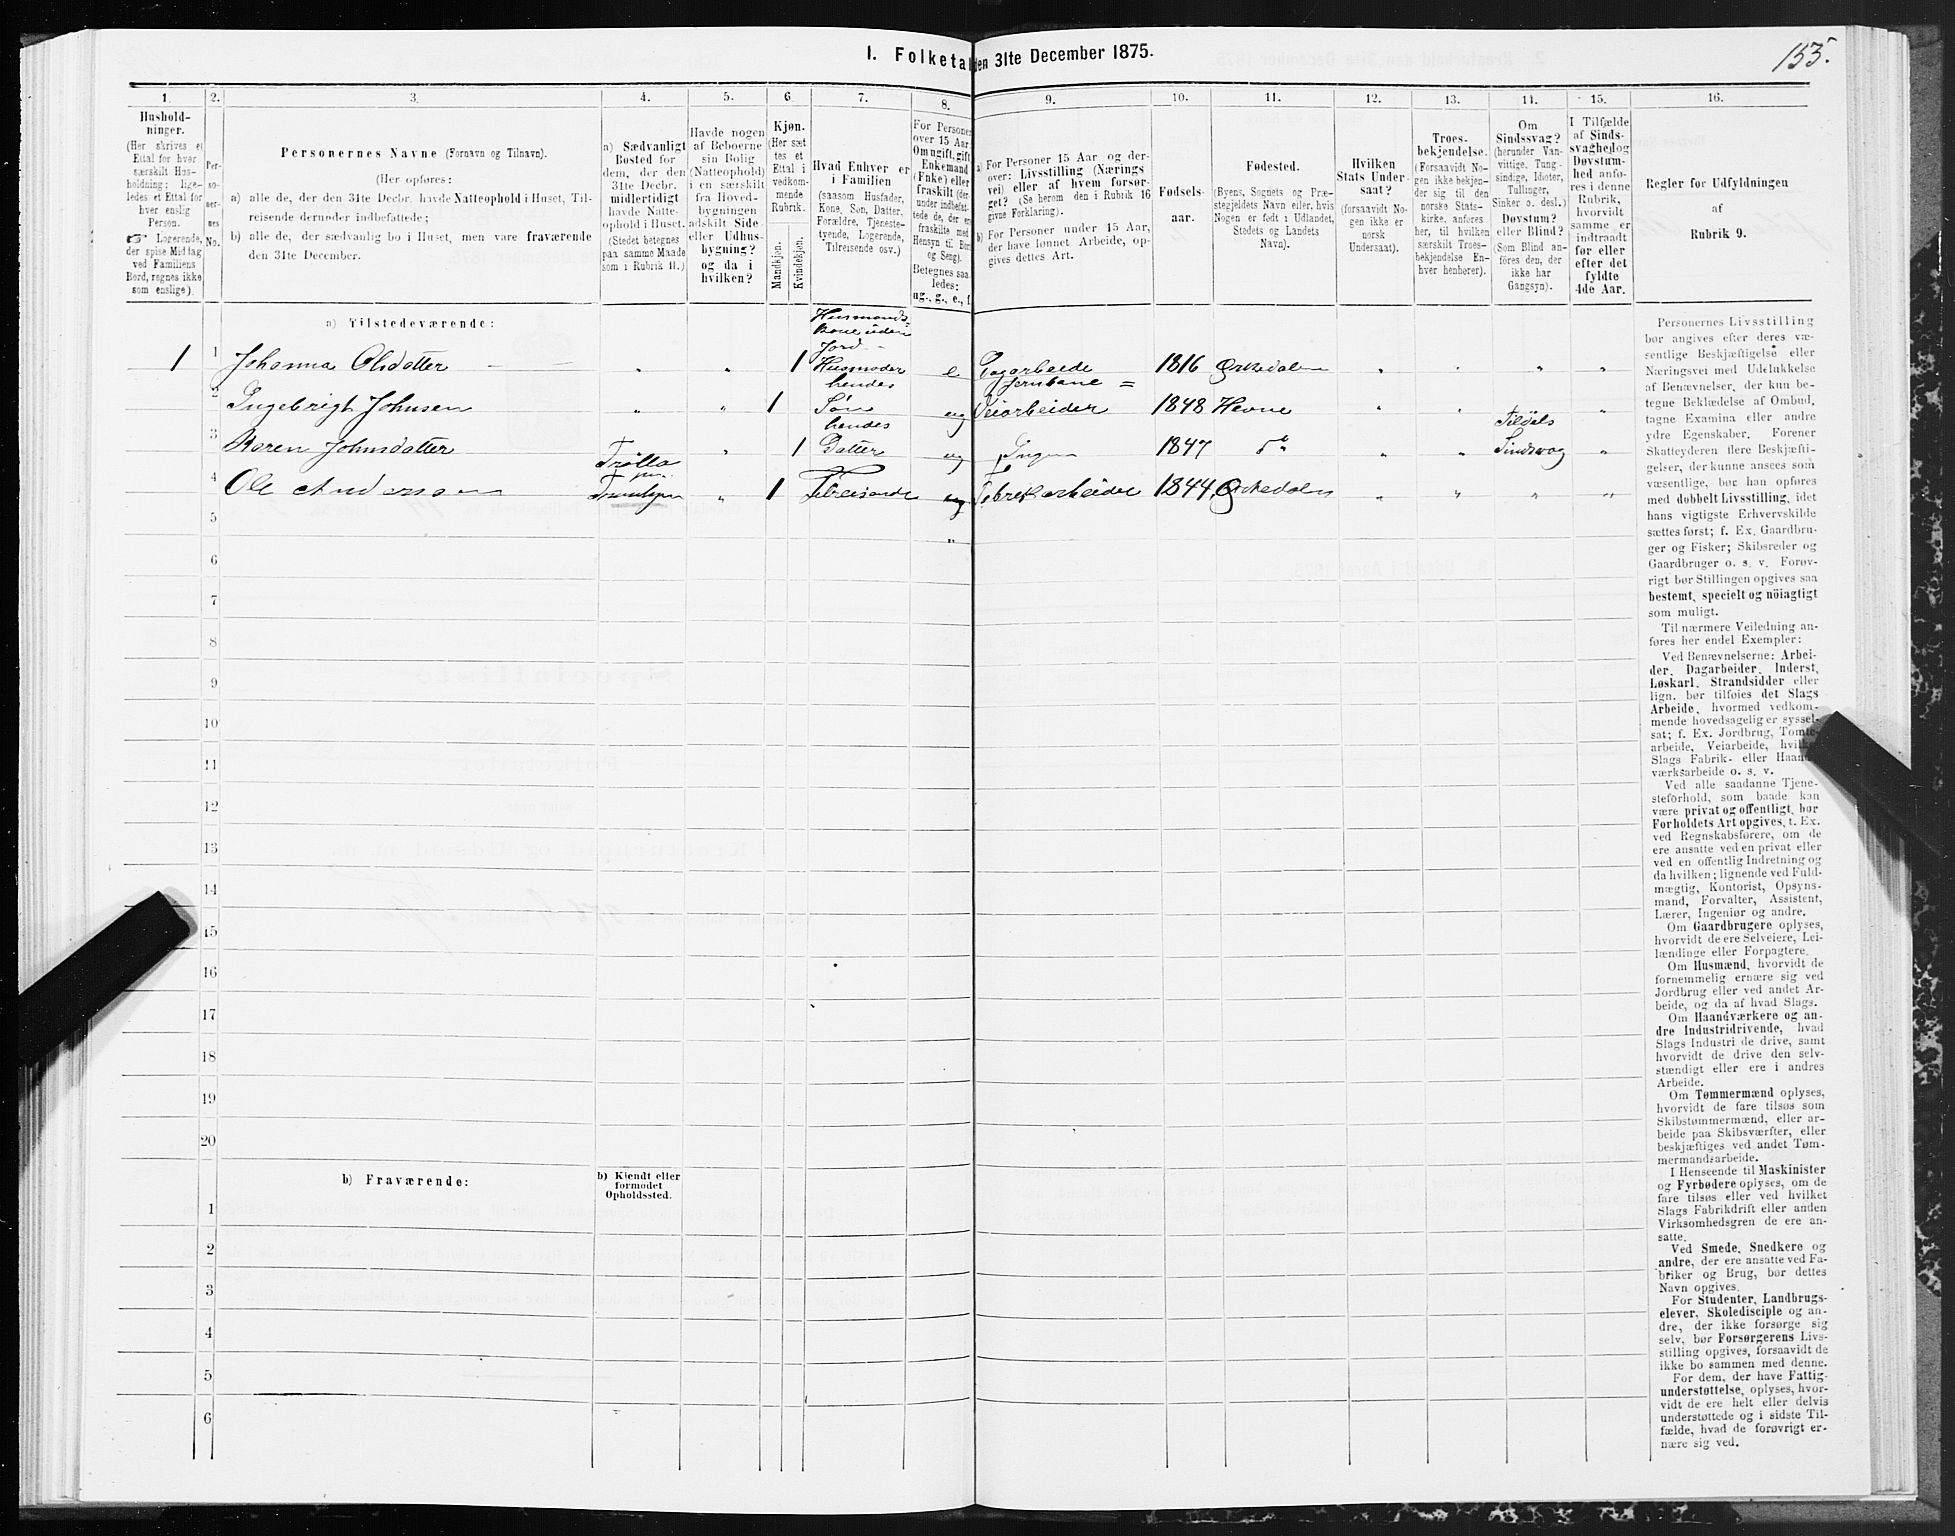 155.
1. Folketal den 31te December 1875.
1. 2. 3. 4. 5. 6. 7. 8. 9. 10. 11. 12. 13. 14. 15. 16.
Hushold-
ninger.
(Her skrives et
Ettal for hver
særskilt Hus-
holdning; lige-
ledes et Ettal for
hver enslig
Person.
☞ Logerende,
der spise Middag
ved Familiens
Bord, regnes ikke
som enslige).
Per-
so-
ner-
nes
No.
Personernes Navne (Fornavn og Tilnavn).
(Her opføres:
a) alle de, der den 31te Decbr. havde Natteophold i Huset, Til-
reisende derunder indbefattede;
b) alle de, der sædvanlig bo i Huset, men vare fraværende
den 31te December.
a) Sædvanligt
Bosted for
dem, der den
31te Decbr.
midlertidigt
havde Natte-
ophold i Huset.
(Stedet betegnes
paa samme Maade
som i Rubrik 11.)
Havde nogen
af Beboerne
sin Bolig
(Natteophold)
i en særskilt
fra Hoved-
bygningen
adskilt Side-
eller Udhus-
bygning?
og da i
hvilken?
Kjøn.
(Her sæt
tes et
Ettal i
vedkom-
mende
Rubrik.
Mandkjøn.
Kvindekjøn.
Hvad Enhver er
i Familien
(saasom Husfader,
Kone, Søn, Datter,
Forældre, Tjeneste-
tyende, Logerende,
Tilreisende osv.)
For Personer
over 15 Aar
Om ugift, gift
Enkemand
(Enke) eller
fraskilt (der-
under indbefat-
tede de, der er
fraskilte med
Hensyn til Bord
og Seng).
Betegnes saa-
ledes:
ug., g., e., f.
a) For Personer 15 Aar og der-
over: Livsstilling (Nærings
vei) eller af hvem forsør-
get? (Se herom den i Rubrik 16
givne Forklaring).
b) For Personer under 15 Aar,
der have lønnet Arbeide, op-
gives dettes Art.
Fødsels-
aar.
Fødested.
(Byens, Sognets og Præ-
stegjeldets Navn eller, hvis
Nogen er født i Udlandet,
Stedets og Landets
Navn).
Hvilken
Stats Under-
saat?
(forsaavidt No-
gen ikke er
norsk
Undersaat).
Troes-
bekjendelse.
(Forsaavidt No-
gen ikke bekjen-
der sig til den
norske Stats-
kirke, anføres
her, til hvilken
særskilt Troes-
bekjendelse En-
hver henhører).
Om
Sindssvag?
(herunder Van-
vittige, Tung-
sindige, Idioter,
Tullinger,
Sinker o. desl.)
Døvstum?
eller Blind?
(Som Blind an-
føres den, der
ikke har
Gangsyn).
I Tilfælde
af Sinds-
svaghed og
Døvstum-
hed anfø-
res i denne
Rubrik,
hvorvidt
samme er
indtraadt
før eller
efter det
fyldte
4de Aar.
Regler for Udfyldningen
af
Rubrik 9.
a) Tilstedeværende:
Husmands-
kone uden
Jord -
1 1 Johanna Olsdatter " " 1 Husmoder e Dagarbeide 1816 Orkedalen " " " "
hendes Jernbane =
2 Ingebrigt Johnsen " " 1 Søn ug Veiarbeider 1848 Hevne " " "
hendes Tildels
3 Karen Johnsdatter " 1 Datter ug Ingen 1847 do " " Sindsvag "
4 Ole Andersen " 1 Tilreisende ug Fabrikarbeider 1844 Orkedalen " " " "
5
6
7
8
9
10
11
12
13
14
15
16
17
18
19
20
b) Fraværende:
b) Kjendt eller
formodet
Opholdssted.
1
2
3
4
5
6
Personernes Livsstilling
bør angives efter deres væ-
sentlige Beskjæftigelse eller
Næringsvei med Udelukkelse
af Benævnelser, der kun be-
tegne Beklædelse af Ombud,
tagne Examina eller andre
ydre Egenskaber. Forener
Skatteyderen flere Beskjæfti-
gelser, der kunne ansees som
væsentlige, bør han opgives
med dobbelt Livsstilling, idet
hans vigtigste Erhvervskilde
sættes først; f. Ex. Gaardbru-
ger og Fisker; Skibsreder og
Gaardbruger o. s. v. Forøv-
rigt bør Stillingen opgives saa
bestemt, specielt og nöiagtigt
som muligt.
Til nærmere Veiledning an-
føres her endel Exempler:
Ved Benævnelserne: Arbei-
der, Dagarbeider, Inderst,
Løskarl, Strandsidder eller
lign. bør tilføies det Slags
Arbeide, hvormed vedkom-
mende hovedsagelig er syssel-
sat; f. Ex. Jordbrug, Tomte-
arbeide, Veiarbeide, hvilket
Slags Fabrik- eller Haand-
værksarbeide o. s. v.
Ved alle saadanne Tjene-
steforhold, som baade kan
være privat og offentligt, bør
Forholdets Art opgives, t. Ex.
ved Regnskabsførere, om de
ere ansatte ved en privat eller
ved en offentlig Indretning og
da hvilken; lignende ved Fuld-
mægtig, Kontorist, Opsyns-
mand, Forvalter, Assistent,
Lærer, Ingeniør og andre.
Om Gaardbrugere oplyses,
hvorvidt de ere Selveiere, Lei-
lændinge eller Forpagtere.
Om Husmænd, hvorvidt de
fornemmelig ernære sig ved
Jordbrug eller ved andet Ar-
beide, og da af hvad Slags.
Om Haandværkere og an-
dre Industridrivende, hvad
Slags Industri de drive, samt
hvorvidt de drive den selv-
stændigt eller ere i andres
Arbeide.
Om Tømmermænd oplyses,
hvorvidt de fare tilsøs som
Skibstømmermænd, eller ar-
beide paa Skibsværfter, eller
beskjæftiges ved andet Tøm-
mermandsarbeide.
I Henseende til Maskinister
og Fyrbødere oplyses, om de
fare tilsøs eller ved hvilket
Slags Fabrikdrift eller anden
Virksomhedsgren de ere an-
satte.
Ved Smede, Snedkere og
andre, der ere ansatte ved Fa-
briker og Brug, bør dettes
Navn opgives.
For Studenter, Landbrugs-
elever, Skoledisciple og an-
dre, der ikke forsørge sig
selv, bør Forsørgerens Livs-
stilling opgives, forsaavidt de
ikke bo sammen med denne.
For dem, der have Fattig-
understøttelse, oplyses, hvor-
vidt de ere helt eller delvis
understøttede og i sidste Til-
fælde, hvad de forøvrigt er-
nære sig ved.